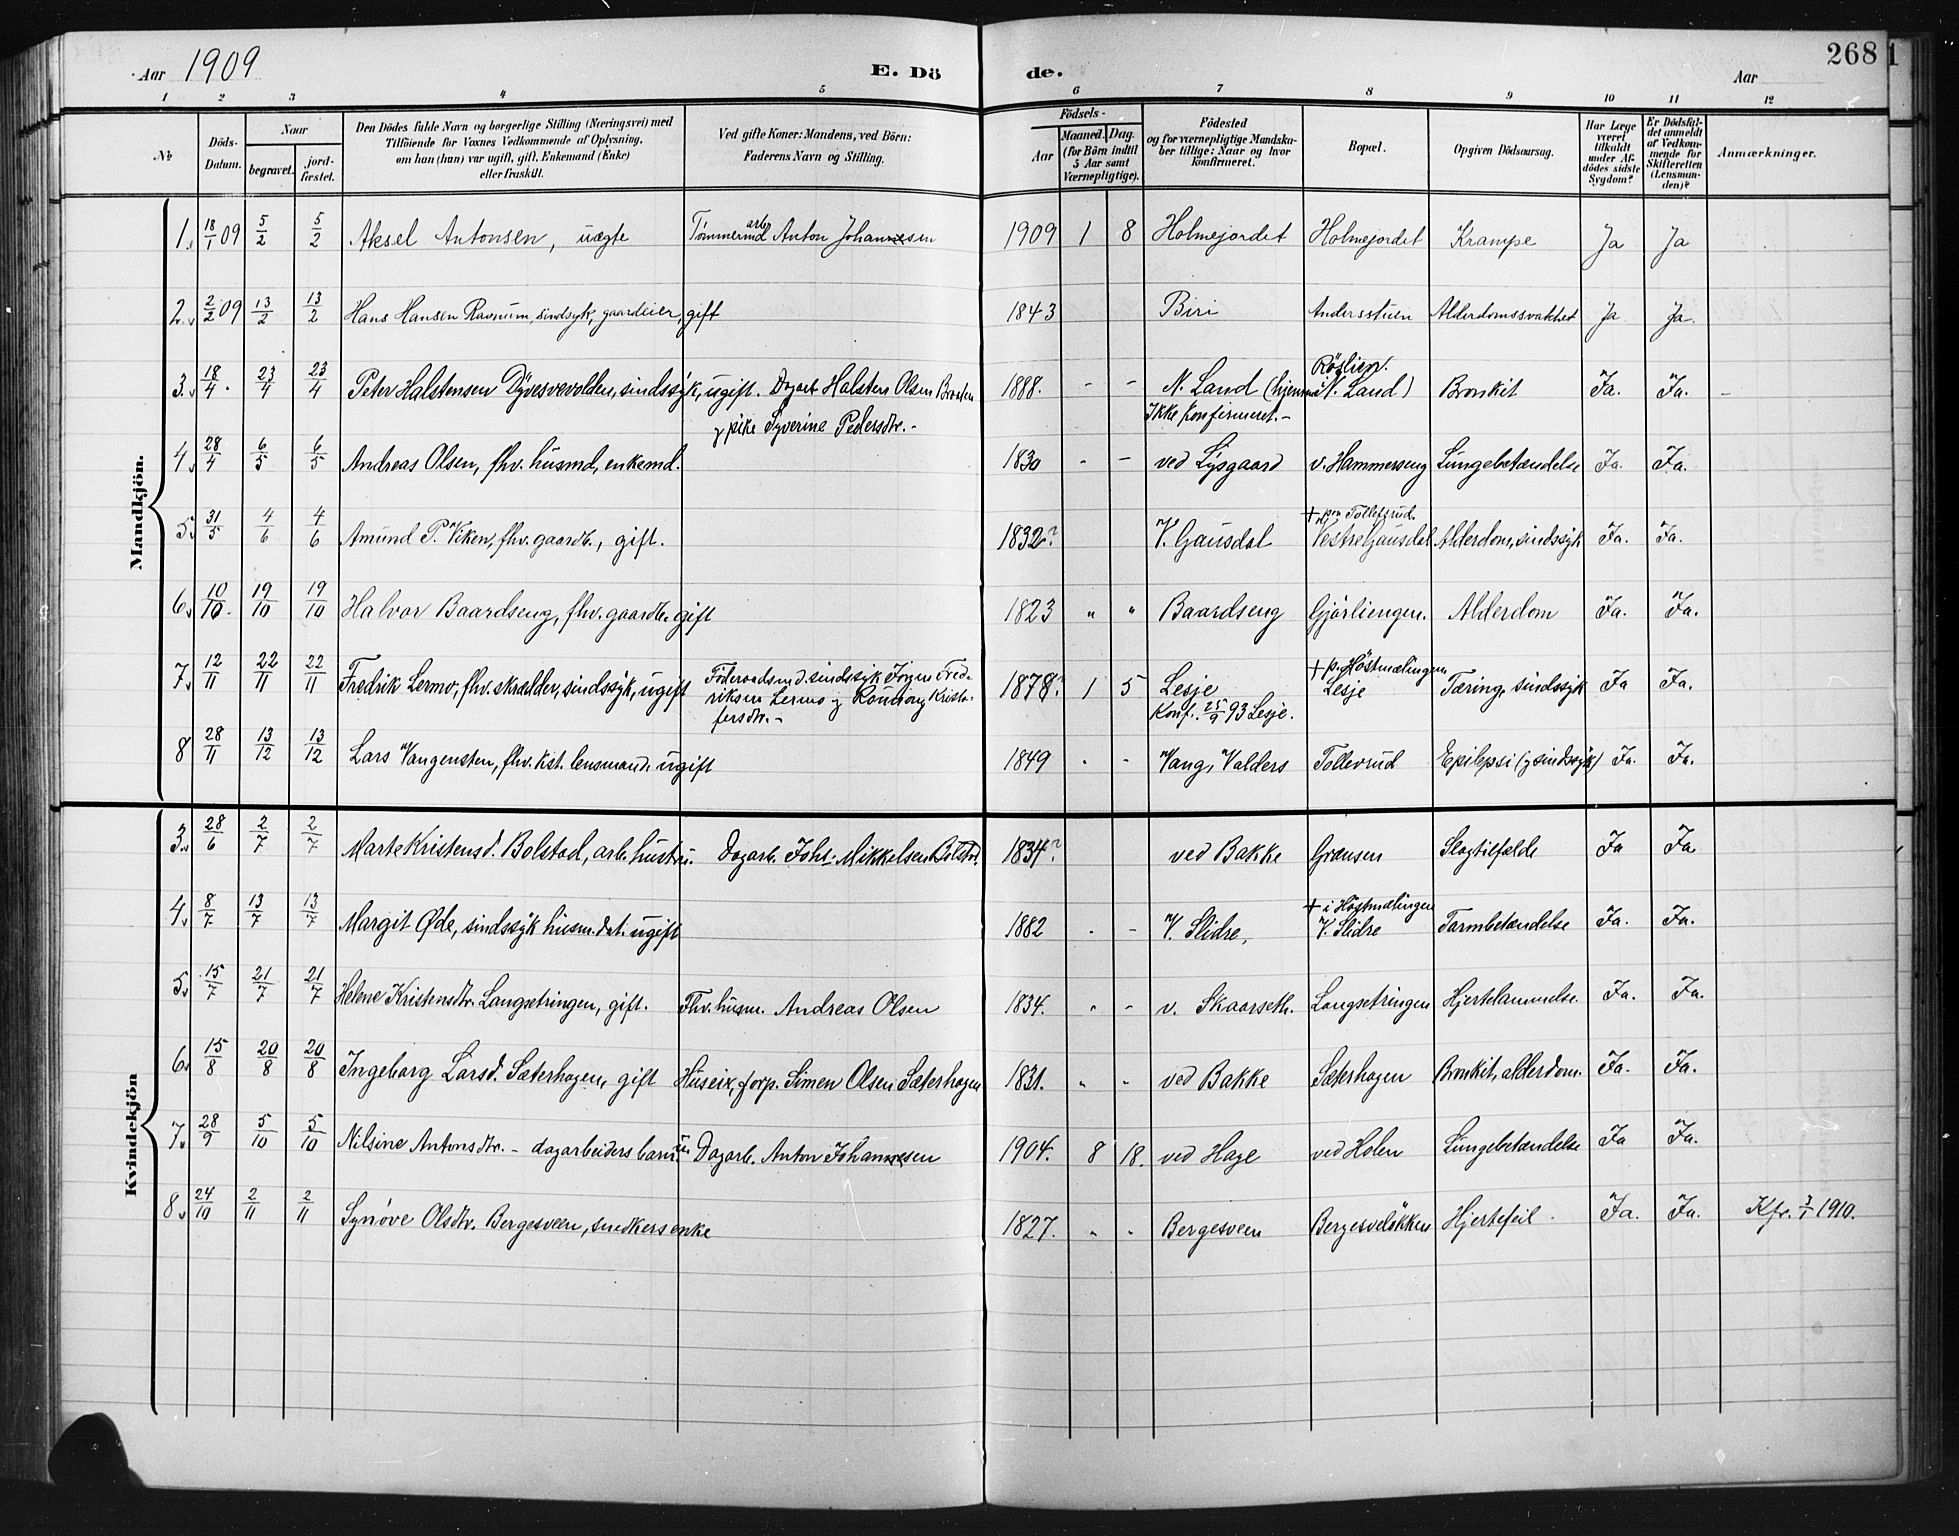 Aar 1909 E. Dö de. Aar 268 1
1 2 3 4 5 6 7 8 9 10 11 12
No
Döds-Datum.
Naar begravet. jordfæstet.
Den Dödes fulde Navn og borgerlige Stilling (Næringsvei) med
Tilföiende for Voxnes Vedkommende af Oplysning,
om han (hun) var ugift, gift, Enkemand (Enke)
eller fraskilt.
Ved gifte Koner: Mandens, ved Börn:
Faderens Navn og Stilling.
Födsels-
Aar Maaned. Dag.
(for Börn indtil
5 Aar samt
Værnepligtige).
Födested
og for værnepligtige Mandskaber tillige: Naar og hvor
Konfirmeret.
Bopæl.
Opgiven Dödsaarsag.
Har Læge
været
tilkaldt
under Afdödes sidste
Sygdom?
Er Dödsfaldet anmeldt
af Vedkommende for
Skifteretten
(Lensmanden)?
Anmærkninger.
Mandkjön.
1. 18/1 09 5/2 5/2 Aksel Antonsen, uægte Tømmermd arb. Anton Johannesen 1909 1 8 Holmejordet Holmejordet Krampe Ja Ja
2. 2/2 09 13/2 13/2 Hans Hansen Ravnum, sindsyk, gaardeier, gift 1843 Biri Andersstuen Alderdomssvakhet Ja Ja.
3. 18/4. 23/4 23/4 Peter Halstensen Dÿvesvevolden, sindssÿk, ugift. Dagarb. Halsten Olsen Braaten 1888. - - N. Land (hjemme i N. Land) Röslien. Bronkit Ja. Ja. -
& pike Syverine Pedersdtr. - Ikke konfirmeret. -
4 28/4 6/5 6/5 Andreas Olsen, fhv. husmd, enkemd. 1830 - - ved Lysgaard v. Hammerseng Lungebetændelse Ja. Ja.
5 31/5 4/6 4/6 Amund P. Viken, fhv. gaardbr., gift. 1832? V. Gausdal + paa Tollefsrud. Vestre Gausdal Alderdom, sindssyk Ja. Ja.
6 10/10. 19/10 19/10 Halvor Baardseng, fhv. gaardbr. gift 1823 " " Baardseng Gjørliengen. Alderdom Ja. Ja.
7 12/11 22/11 22/11 Fredrik Lermo, fhv. skrædder, sindssÿk, ugift Föderaadsmd. sindssyk Jörgen Fredriksen Lermo & Rönnaug Kristofersdtr. - 1878. 1 5 Lesje + p. Höstmælingen Lesje Tæring, sindssyk Ja Ja.
Konf. 25/9 93 Lesje.
8 28/11 13/12 13/12 Lars Vangensten, fhv. kst. lensmand. ugift 1849 - - Vang, Valders Tollevrud Epilepsi (& sindssyk) Ja. Ja.
Kvindekjön
3. 28/6 2/7 2/7 Marte Kristensd. Bolstad, arb. hustru. Dagarb. Johs. Mikkelsen Bolstad. 1834? ved Bakke Grænsen Slagtilfælde Ja Ja
4 8/7 13/7 13/7 Margit Øde, sindssÿk husm. dat. ugift 1882 - - V. Slidre, + i Höstmælingen V. Slidre Tarmbetændelse Ja. Ja.
5 15/7 21/7 21/7 Helene Kristensdtr. Langsetringen, gift. Fhv. husm. Andreas Olsen 1834. " - v. Skaarseth. Langsetringen Hjertelammelse Ja. Ja.
6 15/8 20/8 20/8 Ingeborg Larsd. Sæterhagen, gift Huseier, forp. Simen Olsen Sæterhagen 1831. " " ved Bakke Sæterhagen Bronkit, alderdom. Ja. Ja.
7 28/9 5/10 5/10 Nilsine Antonsdtr. - dagarbeiders barn. Dagarb. Anton Johannesen 1904. 8 18. ved Hage ved Holen Lungebetændelse Ja Ja.
8 24/10 2/11 2/11 Synöve Olsdtr. Bergesveen, snedkers enke 1827. " " Bergesveen Bergesvelökken Hjertefeil. Ja. Ja. Kfr. 3/1 1910.